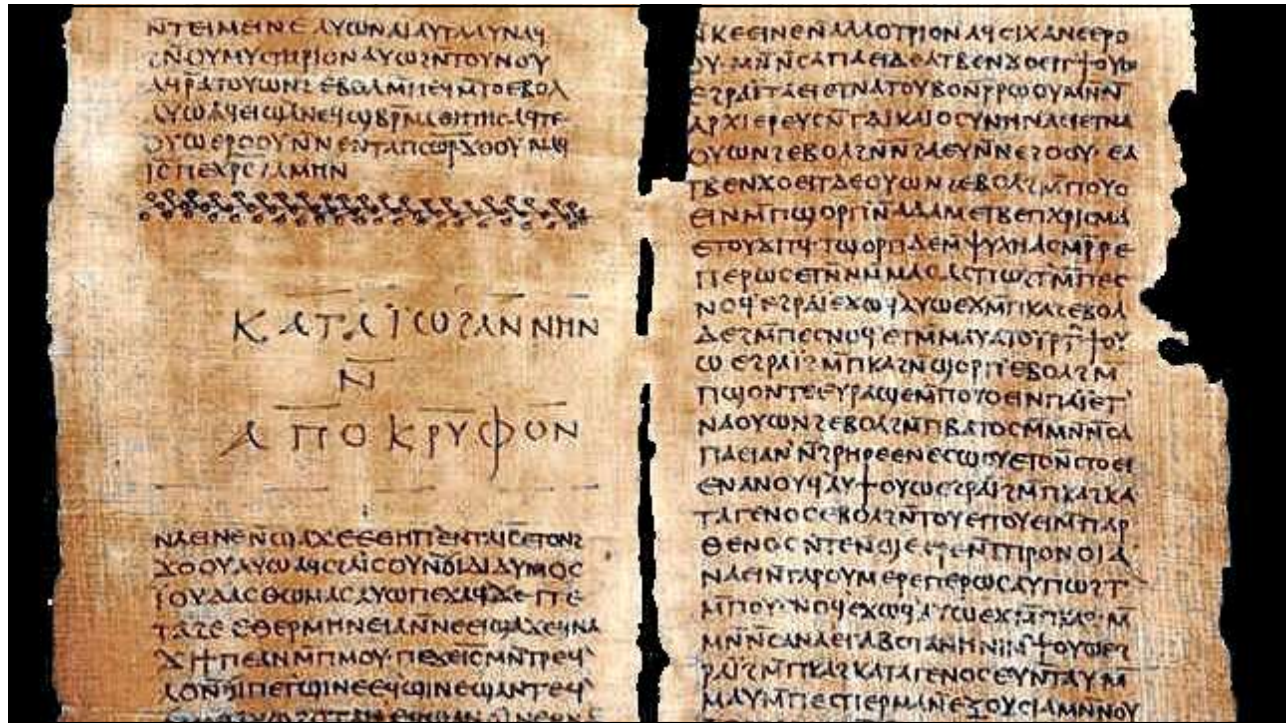 ⲛ̄ⲧⲉⲓⲙⲉⲓⲛⲉ ⲁⲩⲱ ⲛⲁⲓ ⲁⲩⲧⲁⲁⲩ ⲛⲁϥ
ϩⲛ̄ⲟⲩⲙⲩⲥⲧⲏⲣⲓⲟⲛ ⲁⲩⲱ ϩⲛ̄ⲧⲟⲩⲛⲟⲩ
ⲁϥⲣ̄ⲁⲧⲟⲩⲱⲛϩ ⲉⲃⲟⲗ ⲙ̄ⲡⲉϥⲙ̄ⲧⲟ ⲉⲃⲟⲗ
ⲁⲩⲱ ⲁϥⲉⲓ ϣⲁ ⲛⲉϥϣⲃⲣ̄ⲙⲁⲑⲏⲧⲏⲥ ⲁϥⲧⲉ
ⲟⲩⲱ ⲉⲣⲟⲟⲩ ⲛ̄ⲛⲉⲛⲧⲁⲡⲥⲱ̅ⲣ̅ ϫⲟⲟⲩ ⲛⲁϥ
ⲓ̅ⲥ̅ ⲡⲉⲭ̅ⲣ̅ⲥ̅ ϩⲁⲙⲏⲛ
ⲕⲁⲧⲁ ⲓ̈ⲱϩⲁⲛⲛⲏⲛ
ⲛ̄
ⲁⲡⲟⲕⲣⲩⲫⲟⲛ
ⲛⲁⲉⲓ ⲛⲉ ⲛ̄ϣⲁϫⲉ ⲉⲑⲏⲡ ⲉⲛⲧⲁⲓ̅ⲥ̅ ⲉⲧⲟⲛϩ
ϫⲟⲟⲩ ⲁⲩⲱ ⲁϥⲥϩⲁⲓⲥⲟⲩ ⲛ̄ϭⲓ ⲇⲓⲇⲩⲙⲟⲥ
ⲓ̈ⲟⲩⲇⲁⲥ ⲑⲱⲙⲁⲥ ⲁⲩⲱ ⲡⲉϫⲁϥ ϫⲉ ⲡⲉ
ⲧⲁϩⲉ ⲉⲑⲉⲣⲙⲏⲛⲉⲓⲁ ⲛ̄ⲛⲉⲉⲓϣⲁϫⲉ ϥⲛⲁ
ϫⲓ ϯⲡⲉ ⲁⲛ ⲙ̄ⲡⲙⲟⲩ ⲡⲉϫⲉ ⲓ̅ⲥ̅ ⲙⲛ̄ⲧⲣⲉϥ
ⲗⲟ ⲛ̄ϭⲓ ⲡⲉⲧϣⲓⲛⲉ ⲉϥϣⲓⲛⲉ ϣⲁⲛⲧⲉϥ
ⲛ̄ⲕⲉⲉⲓⲛⲉ ⲛ̄ⲁⲗⲗⲟⲧⲣⲓⲟⲛ
ⲉϩⲣⲁⲓ̈
ⲁⲣⲭⲓⲉⲣⲉⲩⲥ ⲛ̄ⲧⲇⲓⲕⲁⲓⲟⲥⲩⲛⲏ ⲛⲁⲉⲓ ⲉⲧⲛⲁ
ⲟⲩⲱⲛϩ ⲉⲃⲟⲗ ϩⲛ̄ⲛ̄ϩⲁⲉⲩ ⲛ̄ⲛⲉϩⲟⲟⲩ ⲉⲁ
ⲧⲃⲉⲛϫⲟⲉⲓⲧ ⲇⲉ ⲟⲩⲱⲛϩ ⲉⲃⲟⲗ ϩⲙ̄ⲡⲟⲩⲟ
ⲉⲓⲛ ⲙ̄ⲡϣⲟⲣⲡ ⲛ̄ⲁⲇⲁⲙ ⲉⲧⲃⲉ ⲡⲭⲣⲓⲥⲙⲁ
ⲉⲧⲟⲩϫⲓⲧϥ ⲧϣⲟⲣⲡ ⲇⲉ ⲙ̄ⲯⲩⲭⲏ ⲁⲥⲙⲣ̄ⲣⲉ
ⲡⲉⲣⲱⲥ ⲉⲧⲛⲙ̄ⲙⲁⲥ ⲁⲥⲡⲱϩⲧ ⲙ̄ⲡⲉⲥ
ⲥⲛⲟϥ ⲉϩⲣⲁⲓ ⲉϫⲱϥ ⲁⲩⲱ ⲉϫⲙ̄ⲡⲕⲁϩ ⲉⲃⲟⲗ
ⲇⲉ ϩⲙ̄ⲡⲉⲥⲛⲟϥ ⲉⲧⲙ̄ⲙⲁⲩ
ⲱ ⲉϩⲣⲁⲓ ϩⲙ̄ⲡⲕⲁϩ ⲛ̄ϣⲟⲣⲡ ⲉⲃⲟⲗ ϩⲙ̄
ⲡϣⲟⲛⲧⲉ ⲉⲩⲣⲁϣⲉ ⲙ̄ⲡⲟⲩⲟⲉⲓⲛ ⲡⲁⲓ̈ ⲉⲧ
ⲛⲁⲟⲩⲱⲛϩ ⲉⲃⲟⲗ ϩⲙ̄ⲡⲃⲁⲧⲟⲥ ⲙⲛ̄ⲛ̄ⲥⲁ
ⲛⲁⲉⲓ ⲁⲛ̄ϩⲣⲏⲣⲉ ⲉⲛⲉⲥⲱⲟⲩ ⲉⲧⲟⲛ ⲥⲧⲟⲉⲓ
ⲉⲛⲁⲛⲟⲩϥ ⲁⲩϯⲟⲩⲱ ⲉϩⲣⲁⲓ̈ ϩⲙ̄ⲡⲕⲁϩ ⲕⲁ
ⲧⲁ ⲅⲉⲛⲟⲥ ⲉⲃⲟⲗ ϩⲛ̄ⲧⲟⲩⲉⲓ ⲧⲟⲩⲉⲓ ⲙ̄ⲡⲁⲣ
ⲑⲉⲛⲟⲥ ⲛ̄ⲧⲉⲛϣⲉⲉⲣⲉ ⲛ̄ⲧⲡⲣⲟⲛⲟⲓⲁ
ⲛⲁⲉⲓ ⲛ̄ⲧⲁⲣⲟⲩⲙⲉⲣⲉⲡⲉⲣⲱⲥ ⲁⲩⲡⲱϩⲧ
ⲙ̄ⲡⲟⲩⲥⲛⲟϥ ⲉϫⲱϥ ⲁⲩⲱ ⲉϫⲙ̄ⲡⲕⲁϩ
ⲙⲛ̄ⲛ̄ⲥⲁⲛⲁⲉⲓ ⲁⲃⲟⲧⲁⲛⲏ ⲛⲓⲙ ϯⲟⲩⲱ ⲉϩ
ⲣⲁⲓ̈ ϩⲙ̄ⲡⲕⲁϩ ⲕⲁⲧⲁ ⲅⲉⲛⲟⲥ ⲉⲩⲛ̄ⲧⲁⲩ ⲙ̄
ⲙⲁⲩ ⲙ̄ⲡⲉⲥⲡⲉⲣⲙⲁ ⲛ̄ⲛⲉⲝⲟⲩⲥⲓⲁ ⲙⲛ̄ⲛⲟⲩ